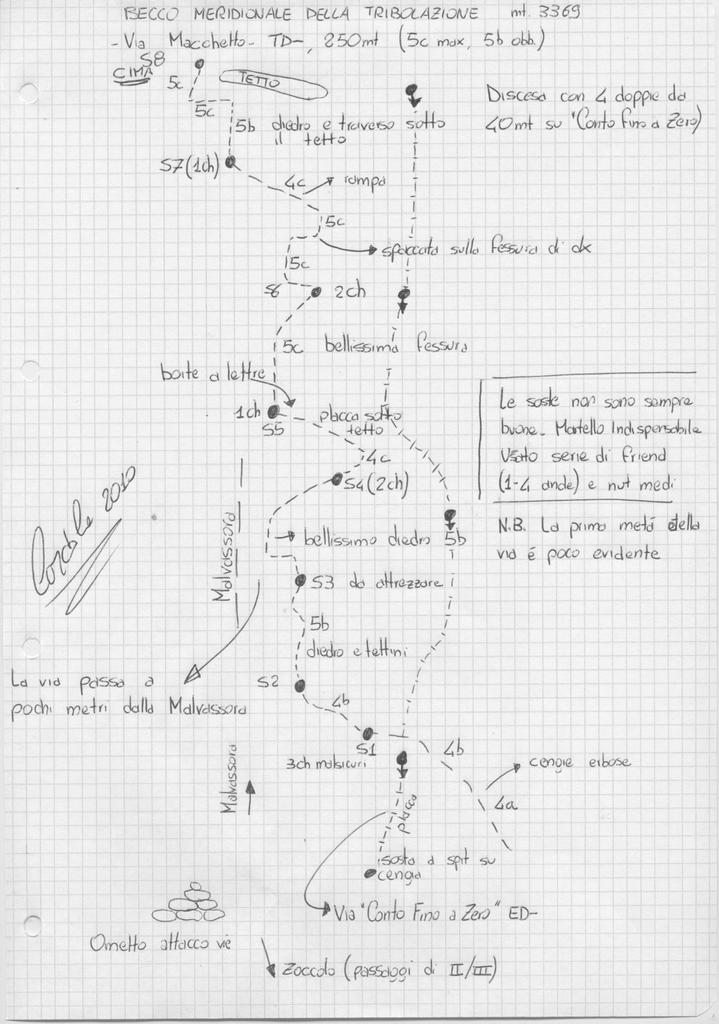 BECCO MERIDIONALE DELLA TRIBOLAZIONE mt. 3369
- Via Macchetto - TD-, 250mt (5c max, 5b obb.)
S8
CIMA
TETTO
5c
5c
5b diedro e traverso sotto
il tetto
Discesa con 4 doppie da
40mt su "Conto Fino a Zero)
S7 (1ch)
4c
rampa
5c
spaccata sulla fessura di dx
5c
S6
2ch
5c
bellissima fessura
boite a lettre
1ch
S5
placca sotto
tetto
4c
S4 (2ch)
Le soste non sono sempre
buone. Martello Indispensabile
Usato serie di friend
(1-4 ande) e nut medi
N.B. La prima metá della
via é poco evidente
2010
Malvassora
bellissimo diedro
5b
S3 da attrezzare
5b
diedro e tettini
La via passa a
pochi metri dalla Malvassora
S2
4b
S1
3ch malsicuri
4b
cengie erbose
4a
Malvassora
placca
sosta a spit su
cengia
Via "Conto Fino a Zero" ED-
Ometto attacco vie
Zoccolo (passaggi di II/III)